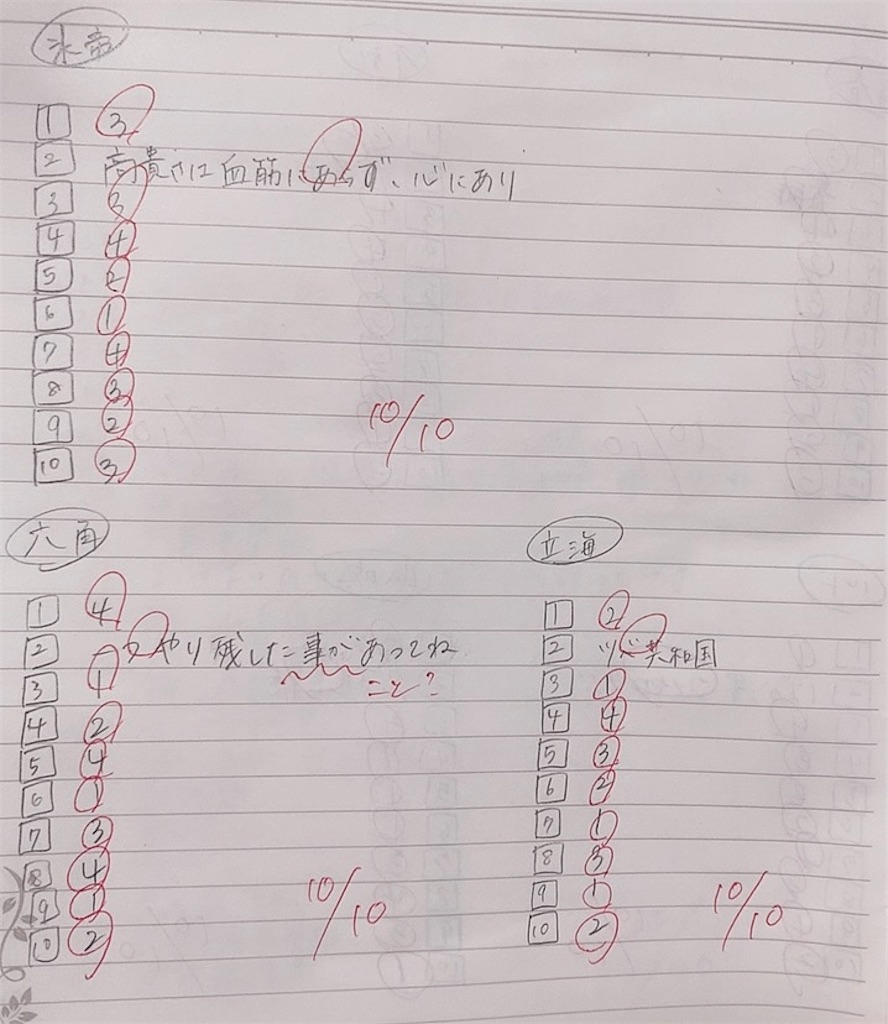 氷帝
1 3
2 高貴さは血筋にあらず、心にあり
3 3
4 4
5 2
6 1
7 4
8 3
9 2
10 3
10/10
六角
1 4
2 やり残した事があってね
こと?
3 1
4 2
5 4
6 1
7 3
8 4
9 1
10 2
10/10
立海
1 2
2 共和国
3 1
4 4
5 3
6 2
7 1
8 3
9 1
10 2
10/10